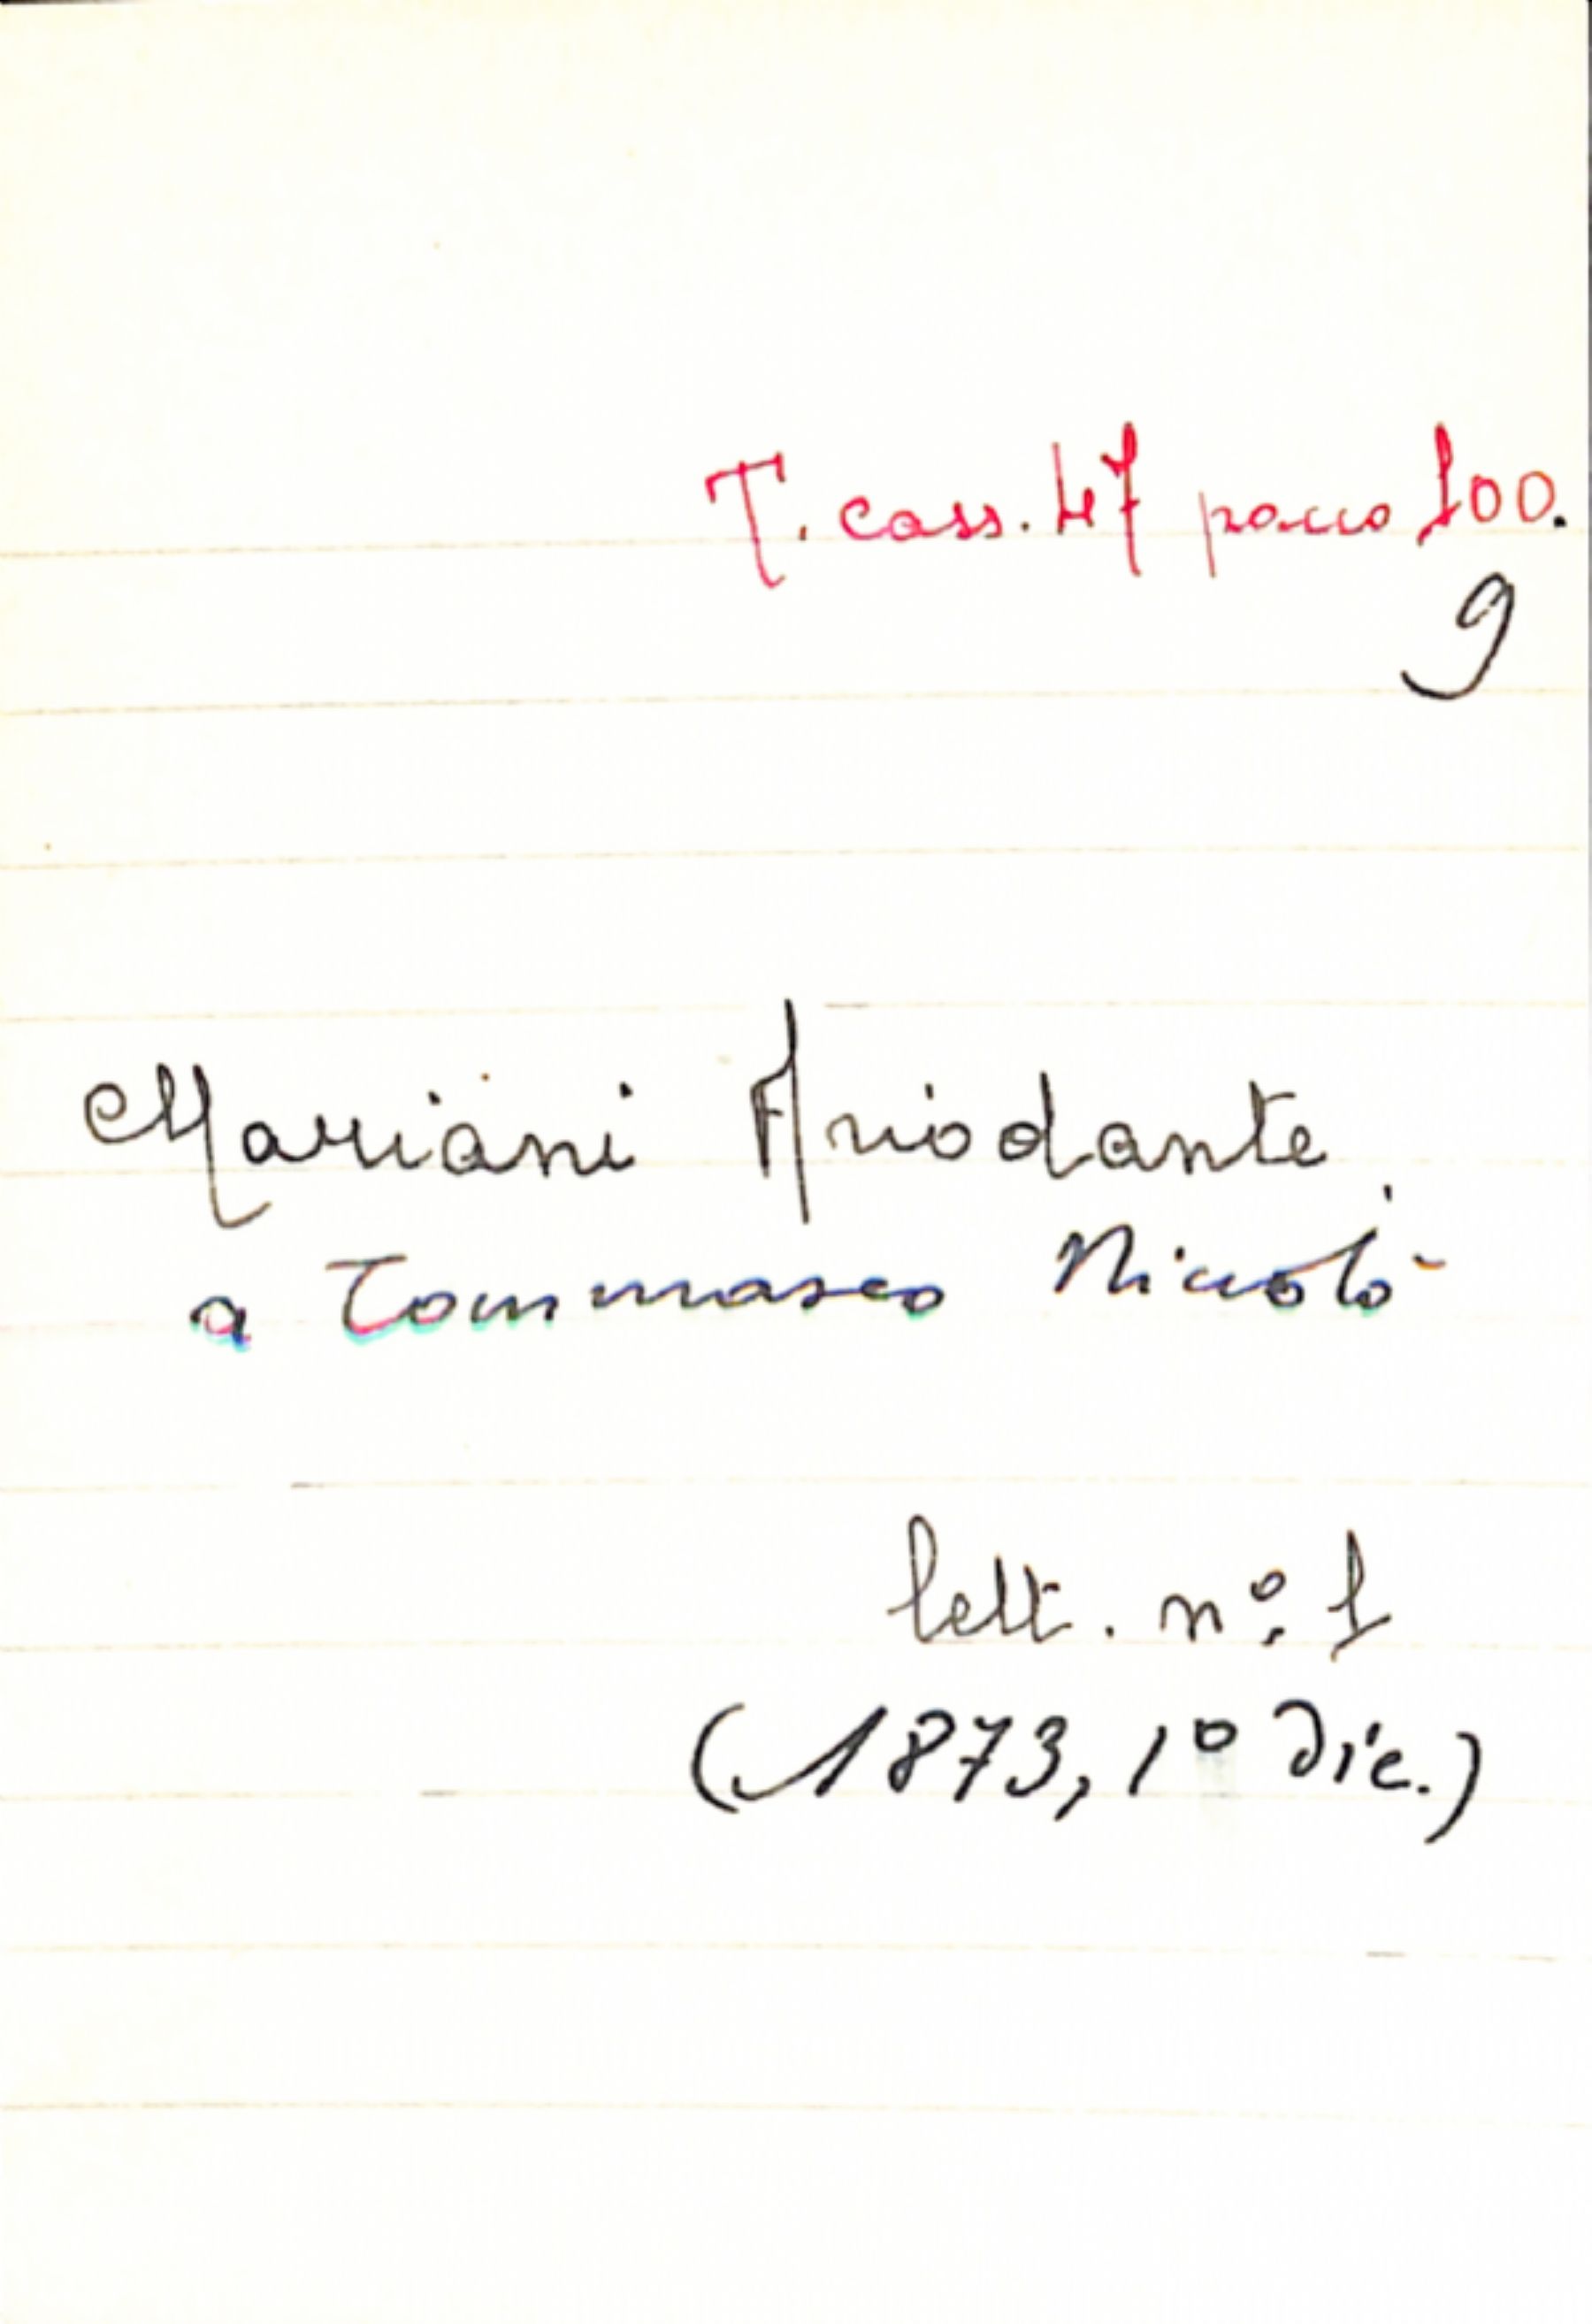 T. cass. 47 pacco 100.
9
Mariani Ariodante
a Tommaseo Niccolò
lett. nº. 1
(1873, 1º dic.)